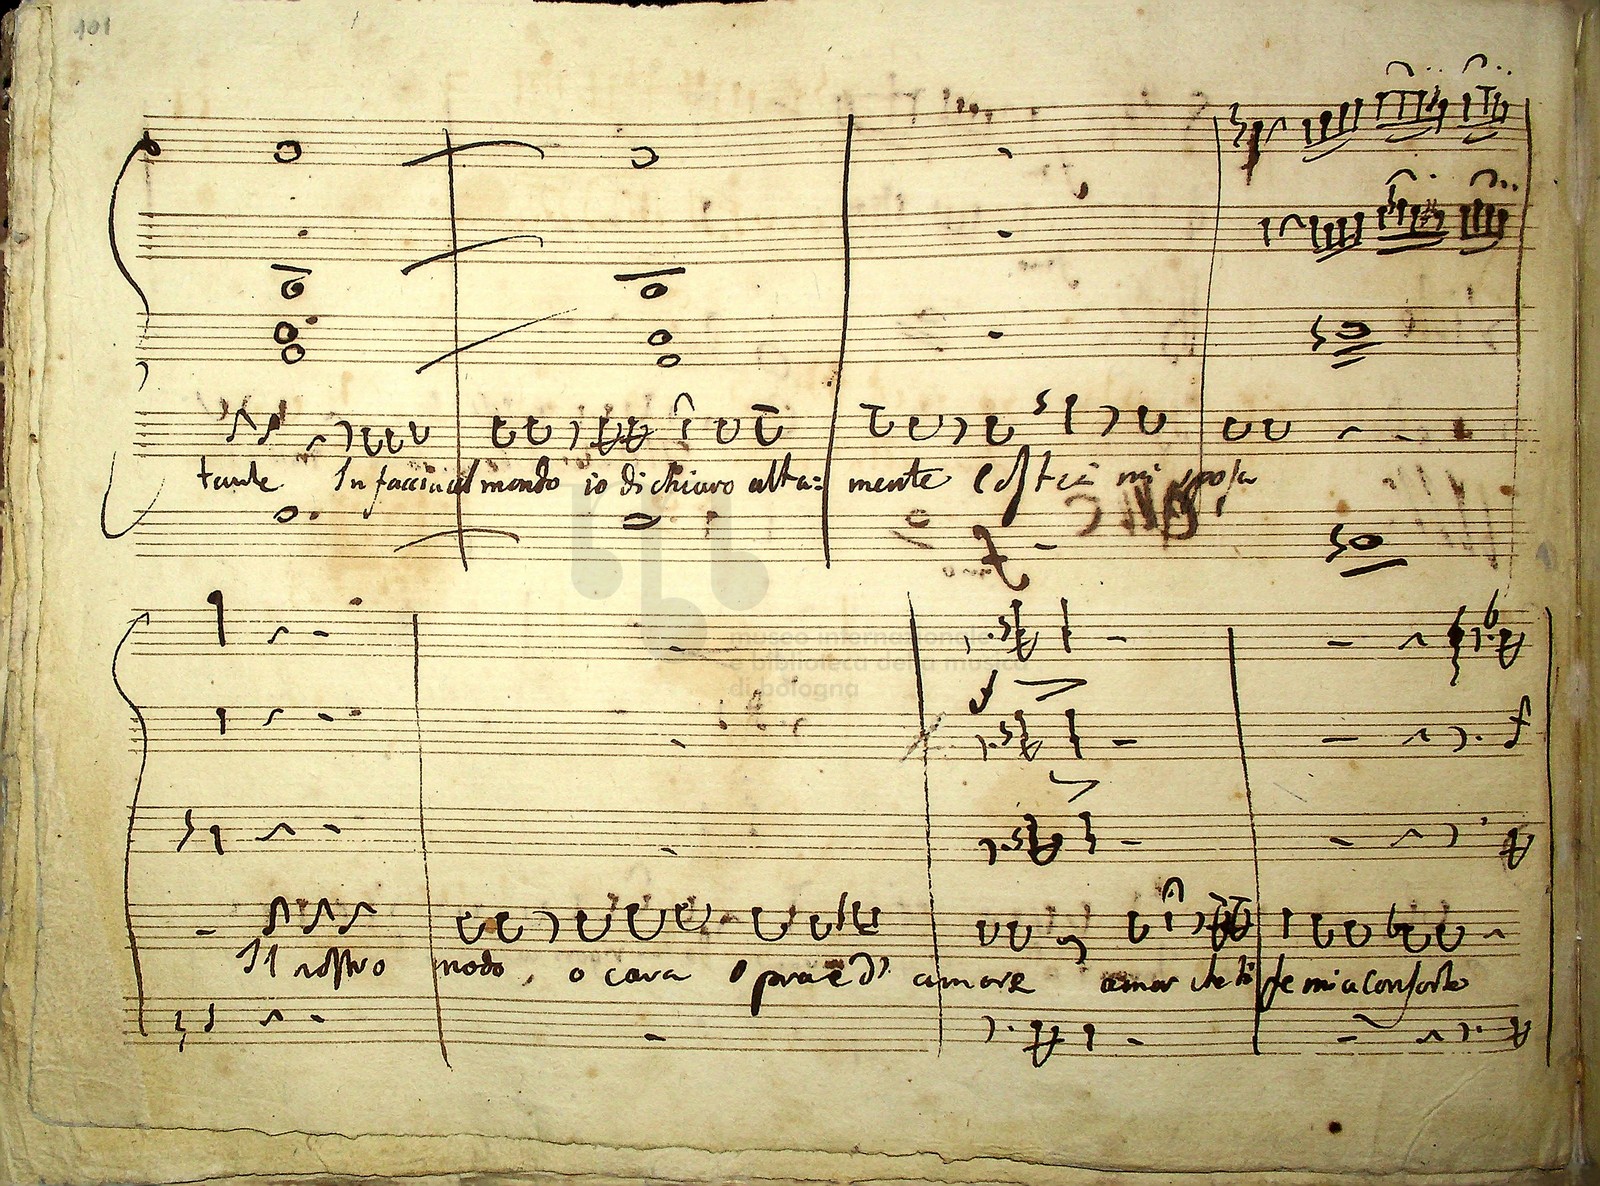 101
tante In faccia al mondo io dichiaro alta= mente Costei mi sposa
museo internazionale
e biblioteca della musica
di bologna
f
Il nostro nodo, o cara Opra è d' amore amor che ti fe mia Conforto